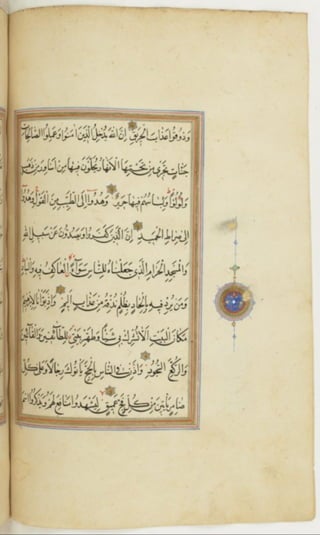 وذوقوا عذاب الحريق ان الله يدخل الذين امنوا وعملوا الصالحات
جنات تجري من تحتها الانهار يحلون فيها من اساور من ذهب
ولؤلؤا ولباسهم فيها حرير وهدوا الى الطيب من القول وهدوا
الى صراط الحميد ان الذين كفروا ويصدون عن سبيل الله
والمسجد الحرام الذي جعلناه للناس سواء العاكف فيه والباد
ومن يرد فيه بالحاد بظلم نذقه من عذاب اليم واذ بوانا لابرهيم
مكان البيت ان لا تشرك بي شيئا وطهر بيتي للطائفين والقائمين
والركع السجود واذن في الناس بالحج ياتوك رجالا وعلى كل
ضامر ياتين من كل فج عميق ليشهدوا منافع لهم ويذكروا اسم